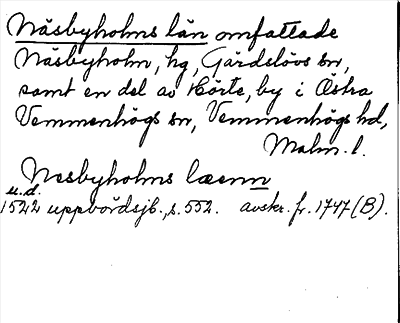 Näsbyholms län omfattade
Näsbyholm, hg, Gärdslövs sn,
samt en del av Hörte, by i Östra
Vemmenhögs sn, Vemmenhögs hd,
Malm. l.
Nesbyholms læenn
u.d.
1522 uppbördsjb., s. 552. avskr. fr. 1747 (B).